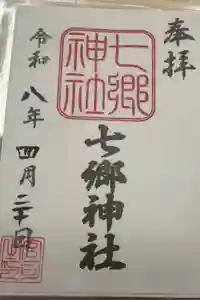 奉拝
七郷
神社
七郷神社
令和八年四月二十日